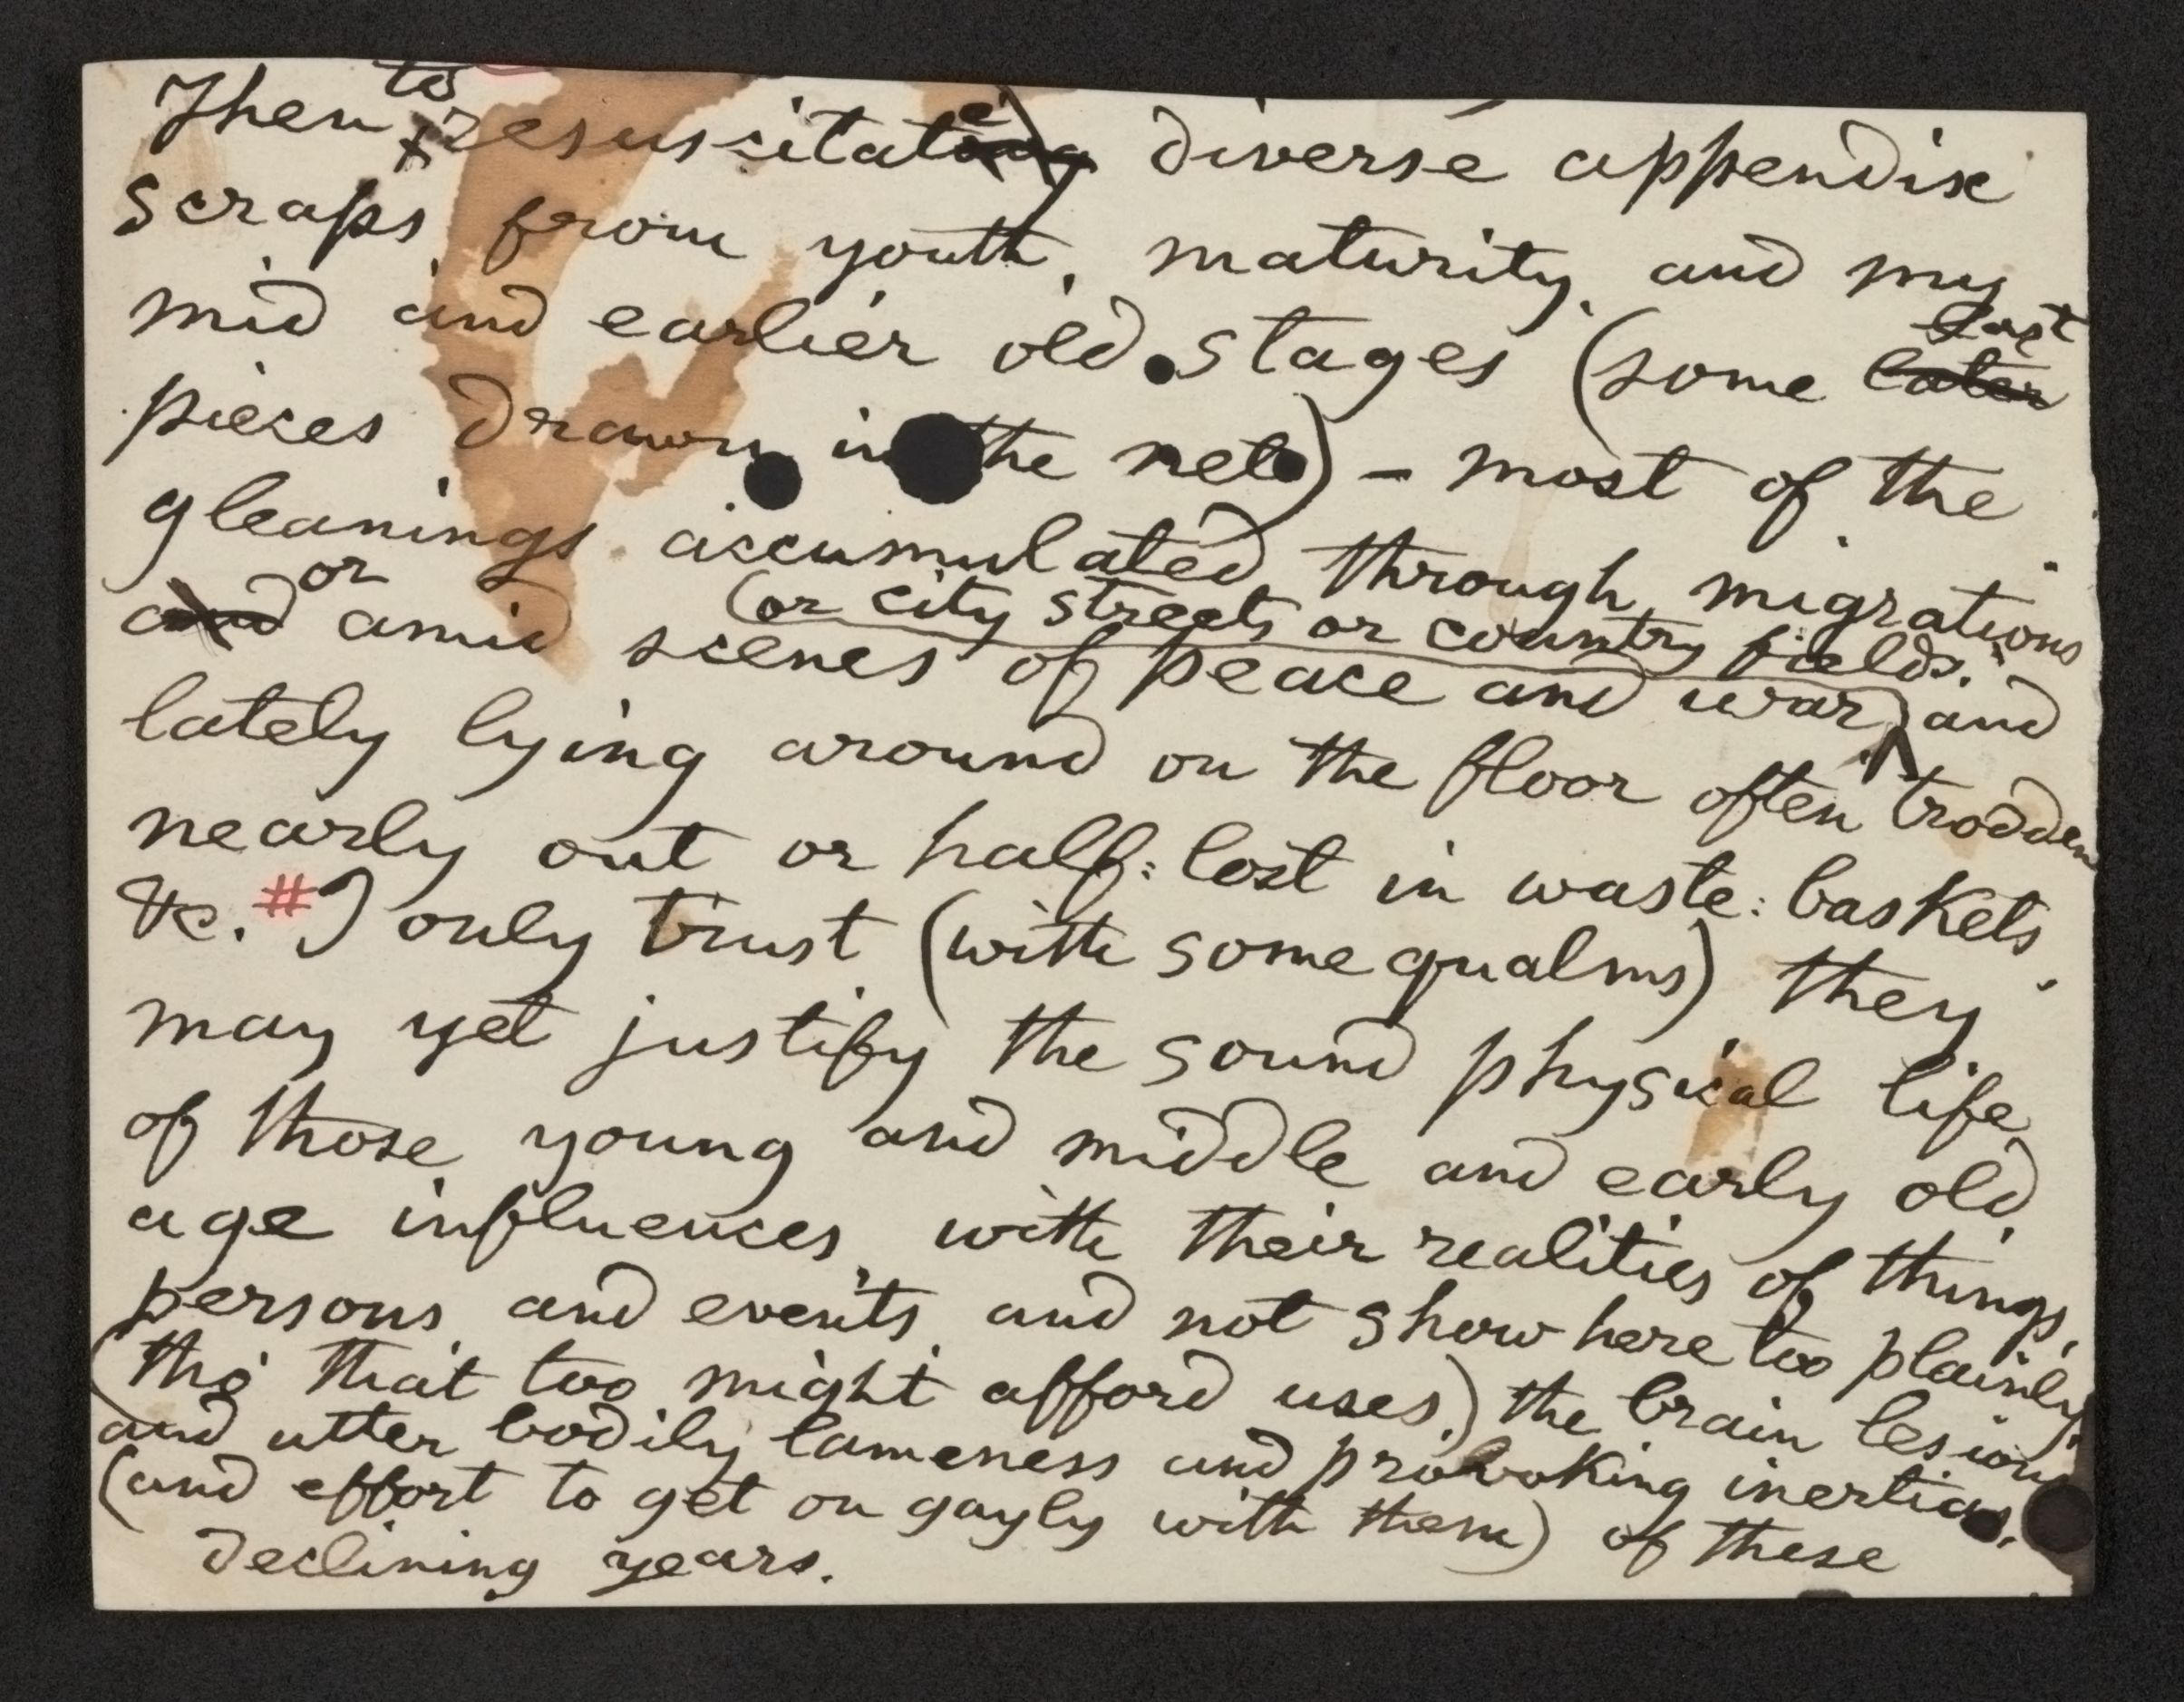 to
Then resuscitate diverse appendix
scraps from youth, maturity, and my
last
mid and earlier old stages (some later
pieces drawn in the net) – most of the
gleanings accumulated through migrations
or
(or city streets or country fields.
and amid scenes of peace and war) and
lately lying around on the floor often trodden
nearly out or half-lost in waste-baskets
&c. # I only trust (with some qualms) they
may yet justify the sound physical life
of those young and middle and early old
age influences, with their realities of things,
persons, and events, and not show here too plainly
(tho' that too might afford uses,) the brain lesions
and utter bodily lameness and provoking inertias,
(and effort to get on gayly with them) of these
declining years.